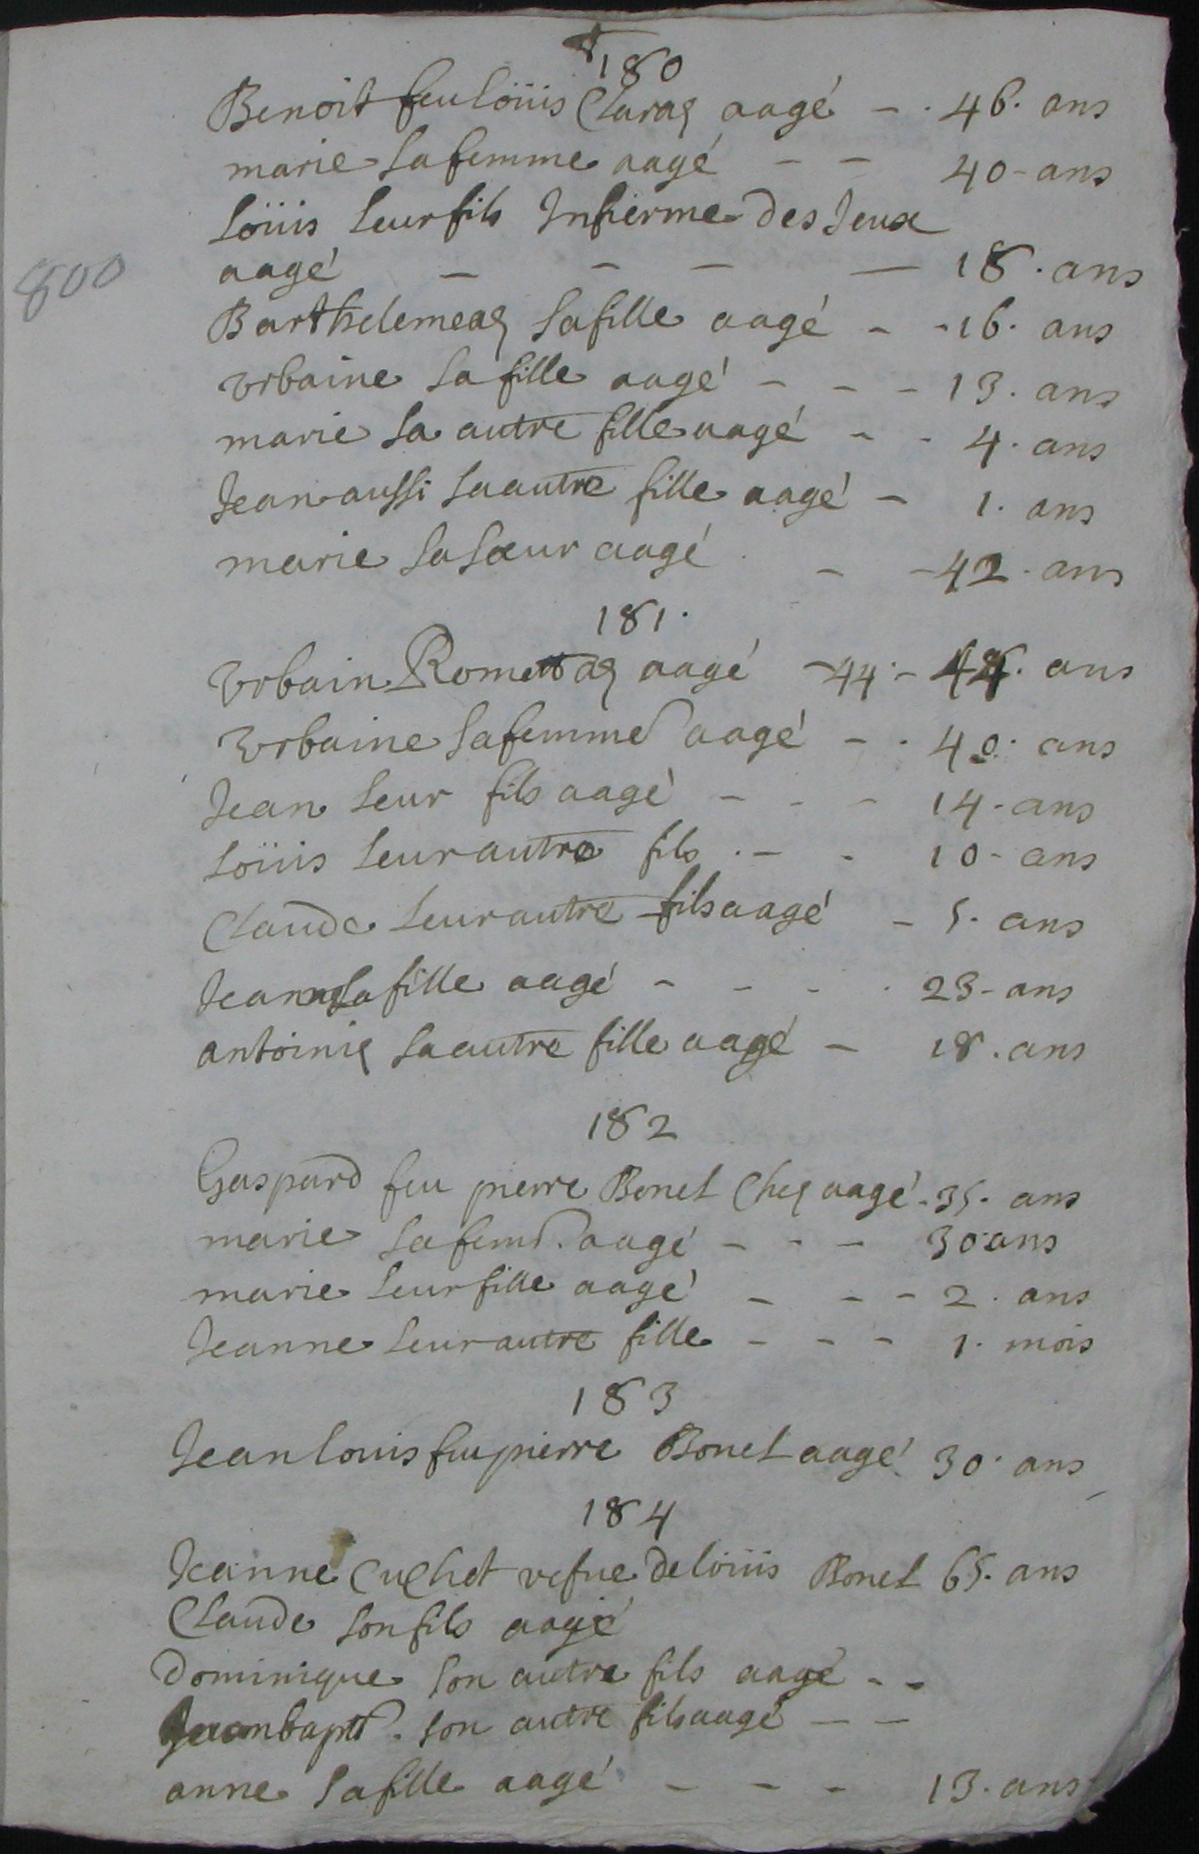 180
Benoit feu loüis Claraz aagé - . 46. ans
marie sa femme aagé - - 40 - ans
loüis leur fils Infirme des Ieux
aagé - - - - 18. ans
800
Barthelemeaz sa fille aagé - - 16. ans
vrbaine sa fille aagé - - - 13. ans
marie sa autre fille aagé - - 4. ans
Jean aussi sa autre fille aagé - 1. ans
marie sa sœur aagé - - 42. ans
181.
Vrbain aagé - 44. - 44. ans
Vrbaine sa femme aagé - . 40. ans
Jean leur fils aagé - - - 14. ans
loüis leur autre fils . - - 10 - ans
Claude leur autre fils aagé - 5. ans
sa fille aagé - - - . 23 - ans
antoiniz sa autre fille aagé - 18. ans
182
Gaspard feu pierre Bonet aagé - 35. ans
marie sa fem. aagé - - - 30 ans
marie leur fille aagé - - - 2. ans
Jeanne leur autre fille - - - 1. mois
183
Jean louis feu pierre Bonet aagé 30. ans
184
Jeanne Cuchet vefue de loüis Bonet 65. ans
Claude son fils aagé
Dominique son autre fils aagé - -
Jeanbapt. son autre fils aagé - -
anne sa fille aagé - - - 13. ans